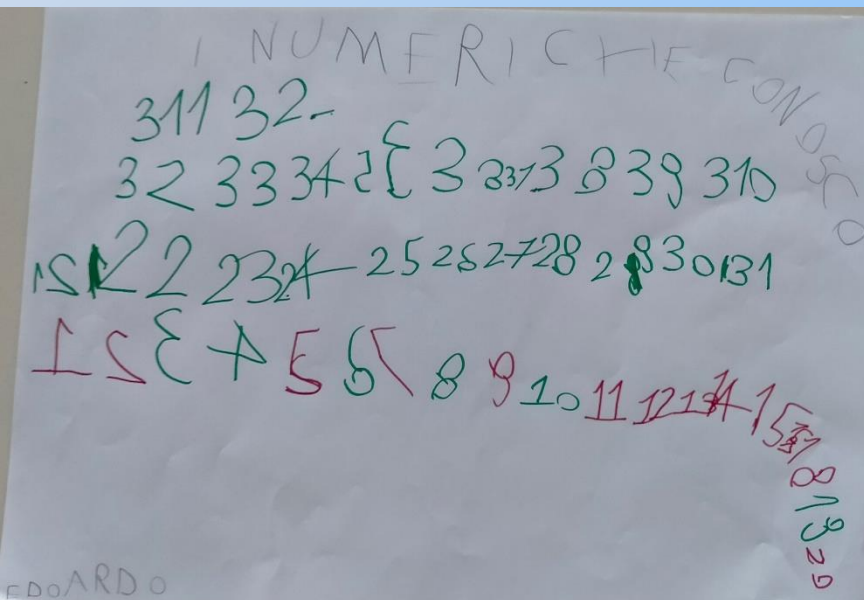 I NUMERI CHE CONOSCO
311 32
32 33 34 35 3 3 3313 8 39 310
21 22 2 23 24 25 26 27 28 2 9 30 31
1 2 3 4 5 6 7 8 9 10 11 12 13 14 15
8
19
20
EDOARDO